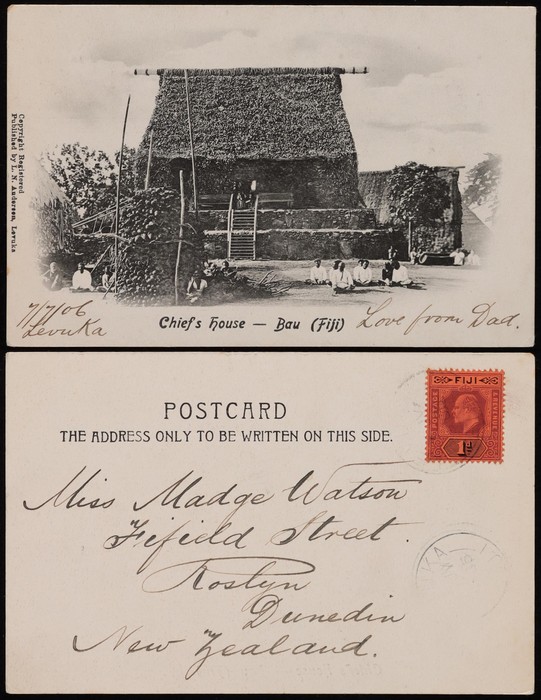 Copyright Registered
Published by L. N. Anderson, Levuka
7/7/06
Levuka
Chief's House — Bau (Fiji)
Love from Dad.
POSTCARD
THE ADDRESS ONLY TO BE WRITTEN ON THIS SIDE.
FIJI
POSTAGE
REVENUE
1d
Miss Madge Watson
Fifield Street.
Roslyn
Dunedin
New Zealand.